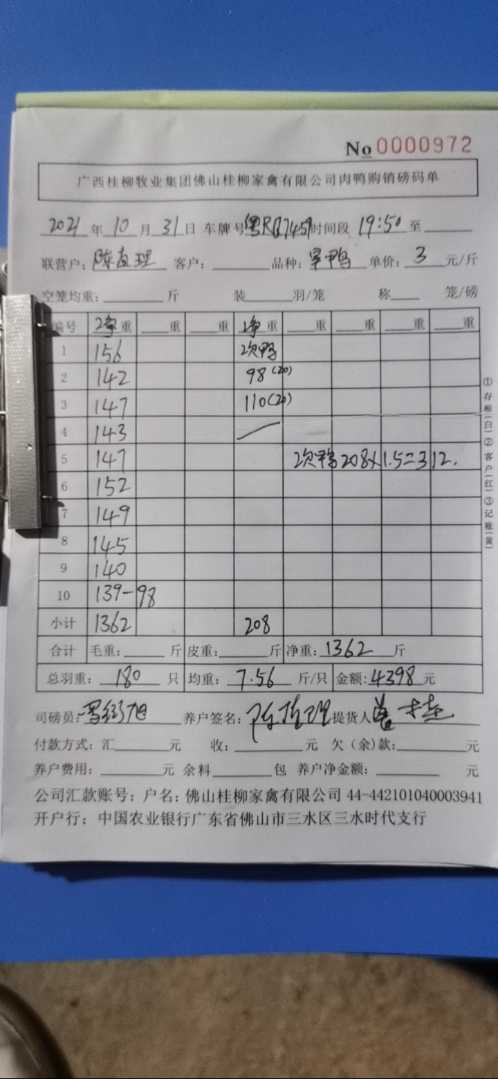 No 0000972
广西桂柳牧业集团佛山桂柳家禽有限公司肉鸭购销磅码单
2021 年 10 月 31 日 车牌号 时间段 19:50 至
联营户: 客户: 品种: 单价: 3 元/斤
空笼均重: 斤 装 羽/笼 称 笼/磅
编号 净重 重 重 净重 重 重 重 重
1 156 次鸭
2 142 98(20)
3 147 110(20)
4 143
5 147 次鸭208×1.5=312.
6 152
7 149
8 145
9 140
10 139-98
小计 1362 208
合计 毛重: 斤 皮重: 斤 净重: 1362 斤
总羽重: 180 只 均重: 7.56 斤/只 金额: 4398 元
司磅员: 养户签名: 提货人
付款方式: 汇 元 收: 元 欠(余)款: 元
养户费用: 元 余料 包 养户净金额: 元
公司汇款账号: 户名: 佛山桂柳家禽有限公司 44-442101040003941
开户行: 中国农业银行广东省佛山市三水区三水时代支行
①存根(白)②客户(红)③记账(黄)